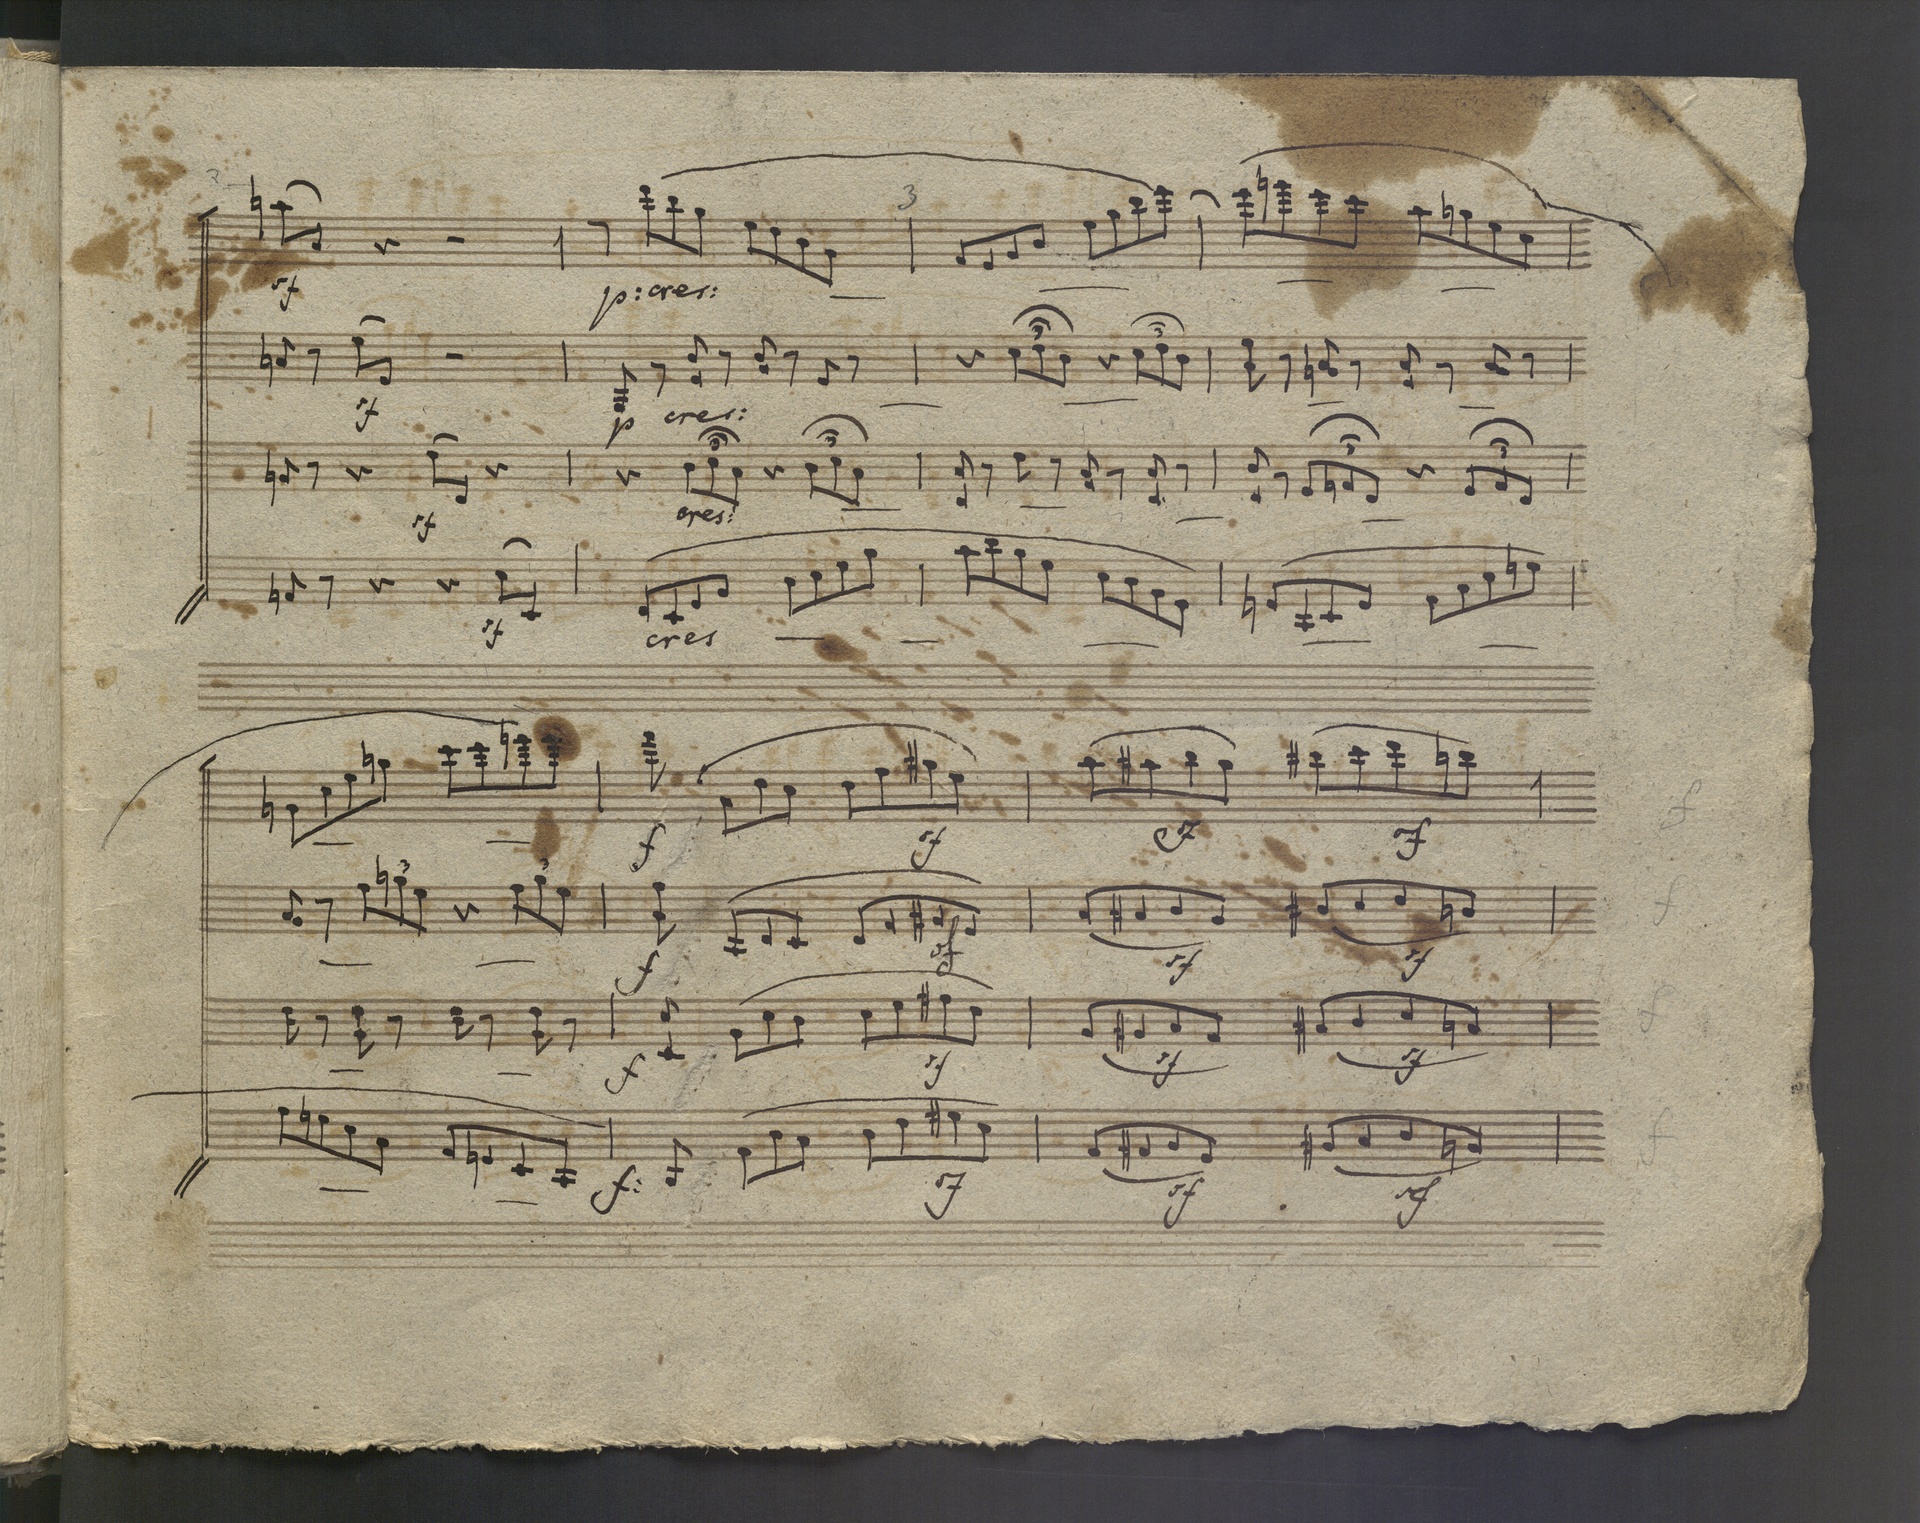 3
sf p: cres:
3 3
sf p cres:
3 3 3 3
sf cres:
sf cres
f sf sf sf
3 3
f sf sf sf
f sf sf sf
f: sf sf sf